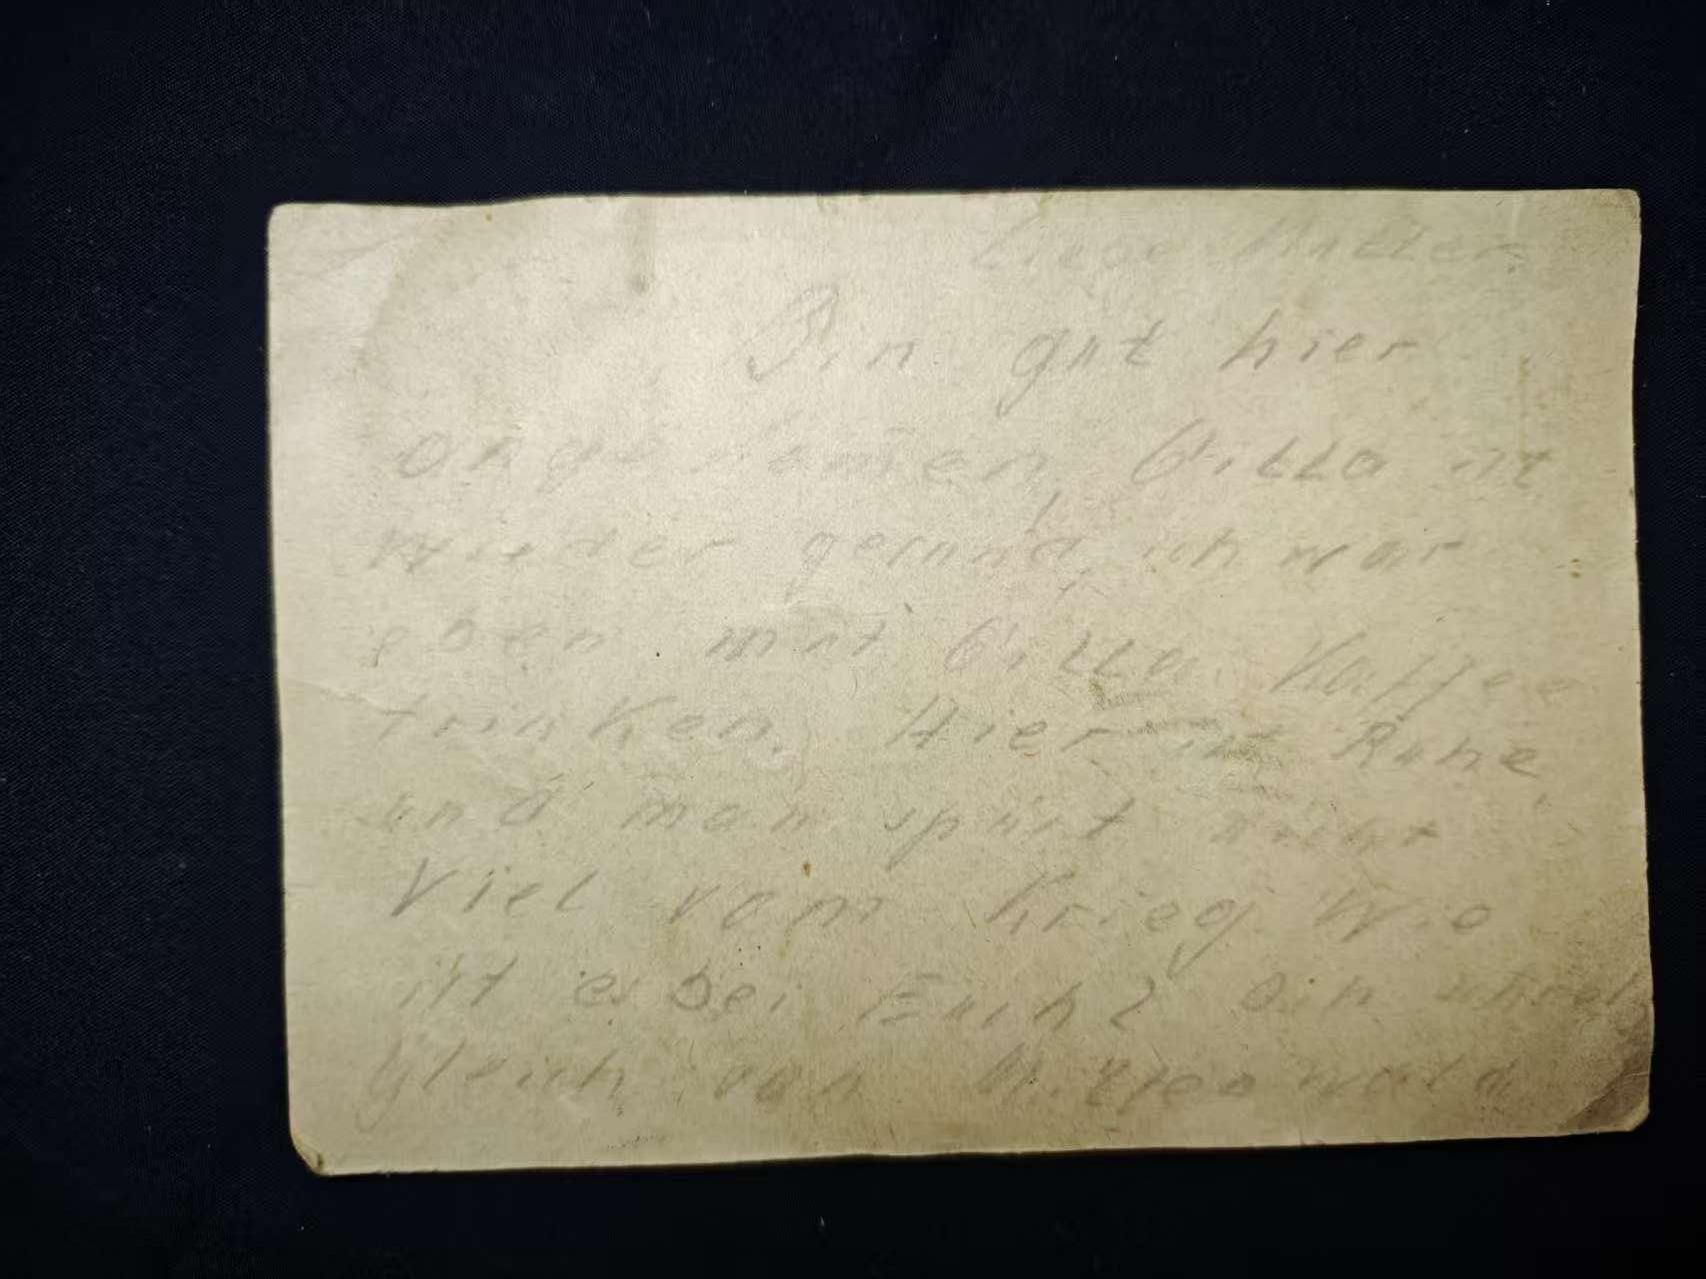 Liebe Mutter
Bin gut hier
angekomen, Gitta ist
wieder gesund, ich war
eben mit Gitta Kaffee
trinken. Hier ist Ruhe,
und man spürt nicht
Viel vom Krieg. Wie
ist es bei Euch? Bin
gleich von Mittenwald